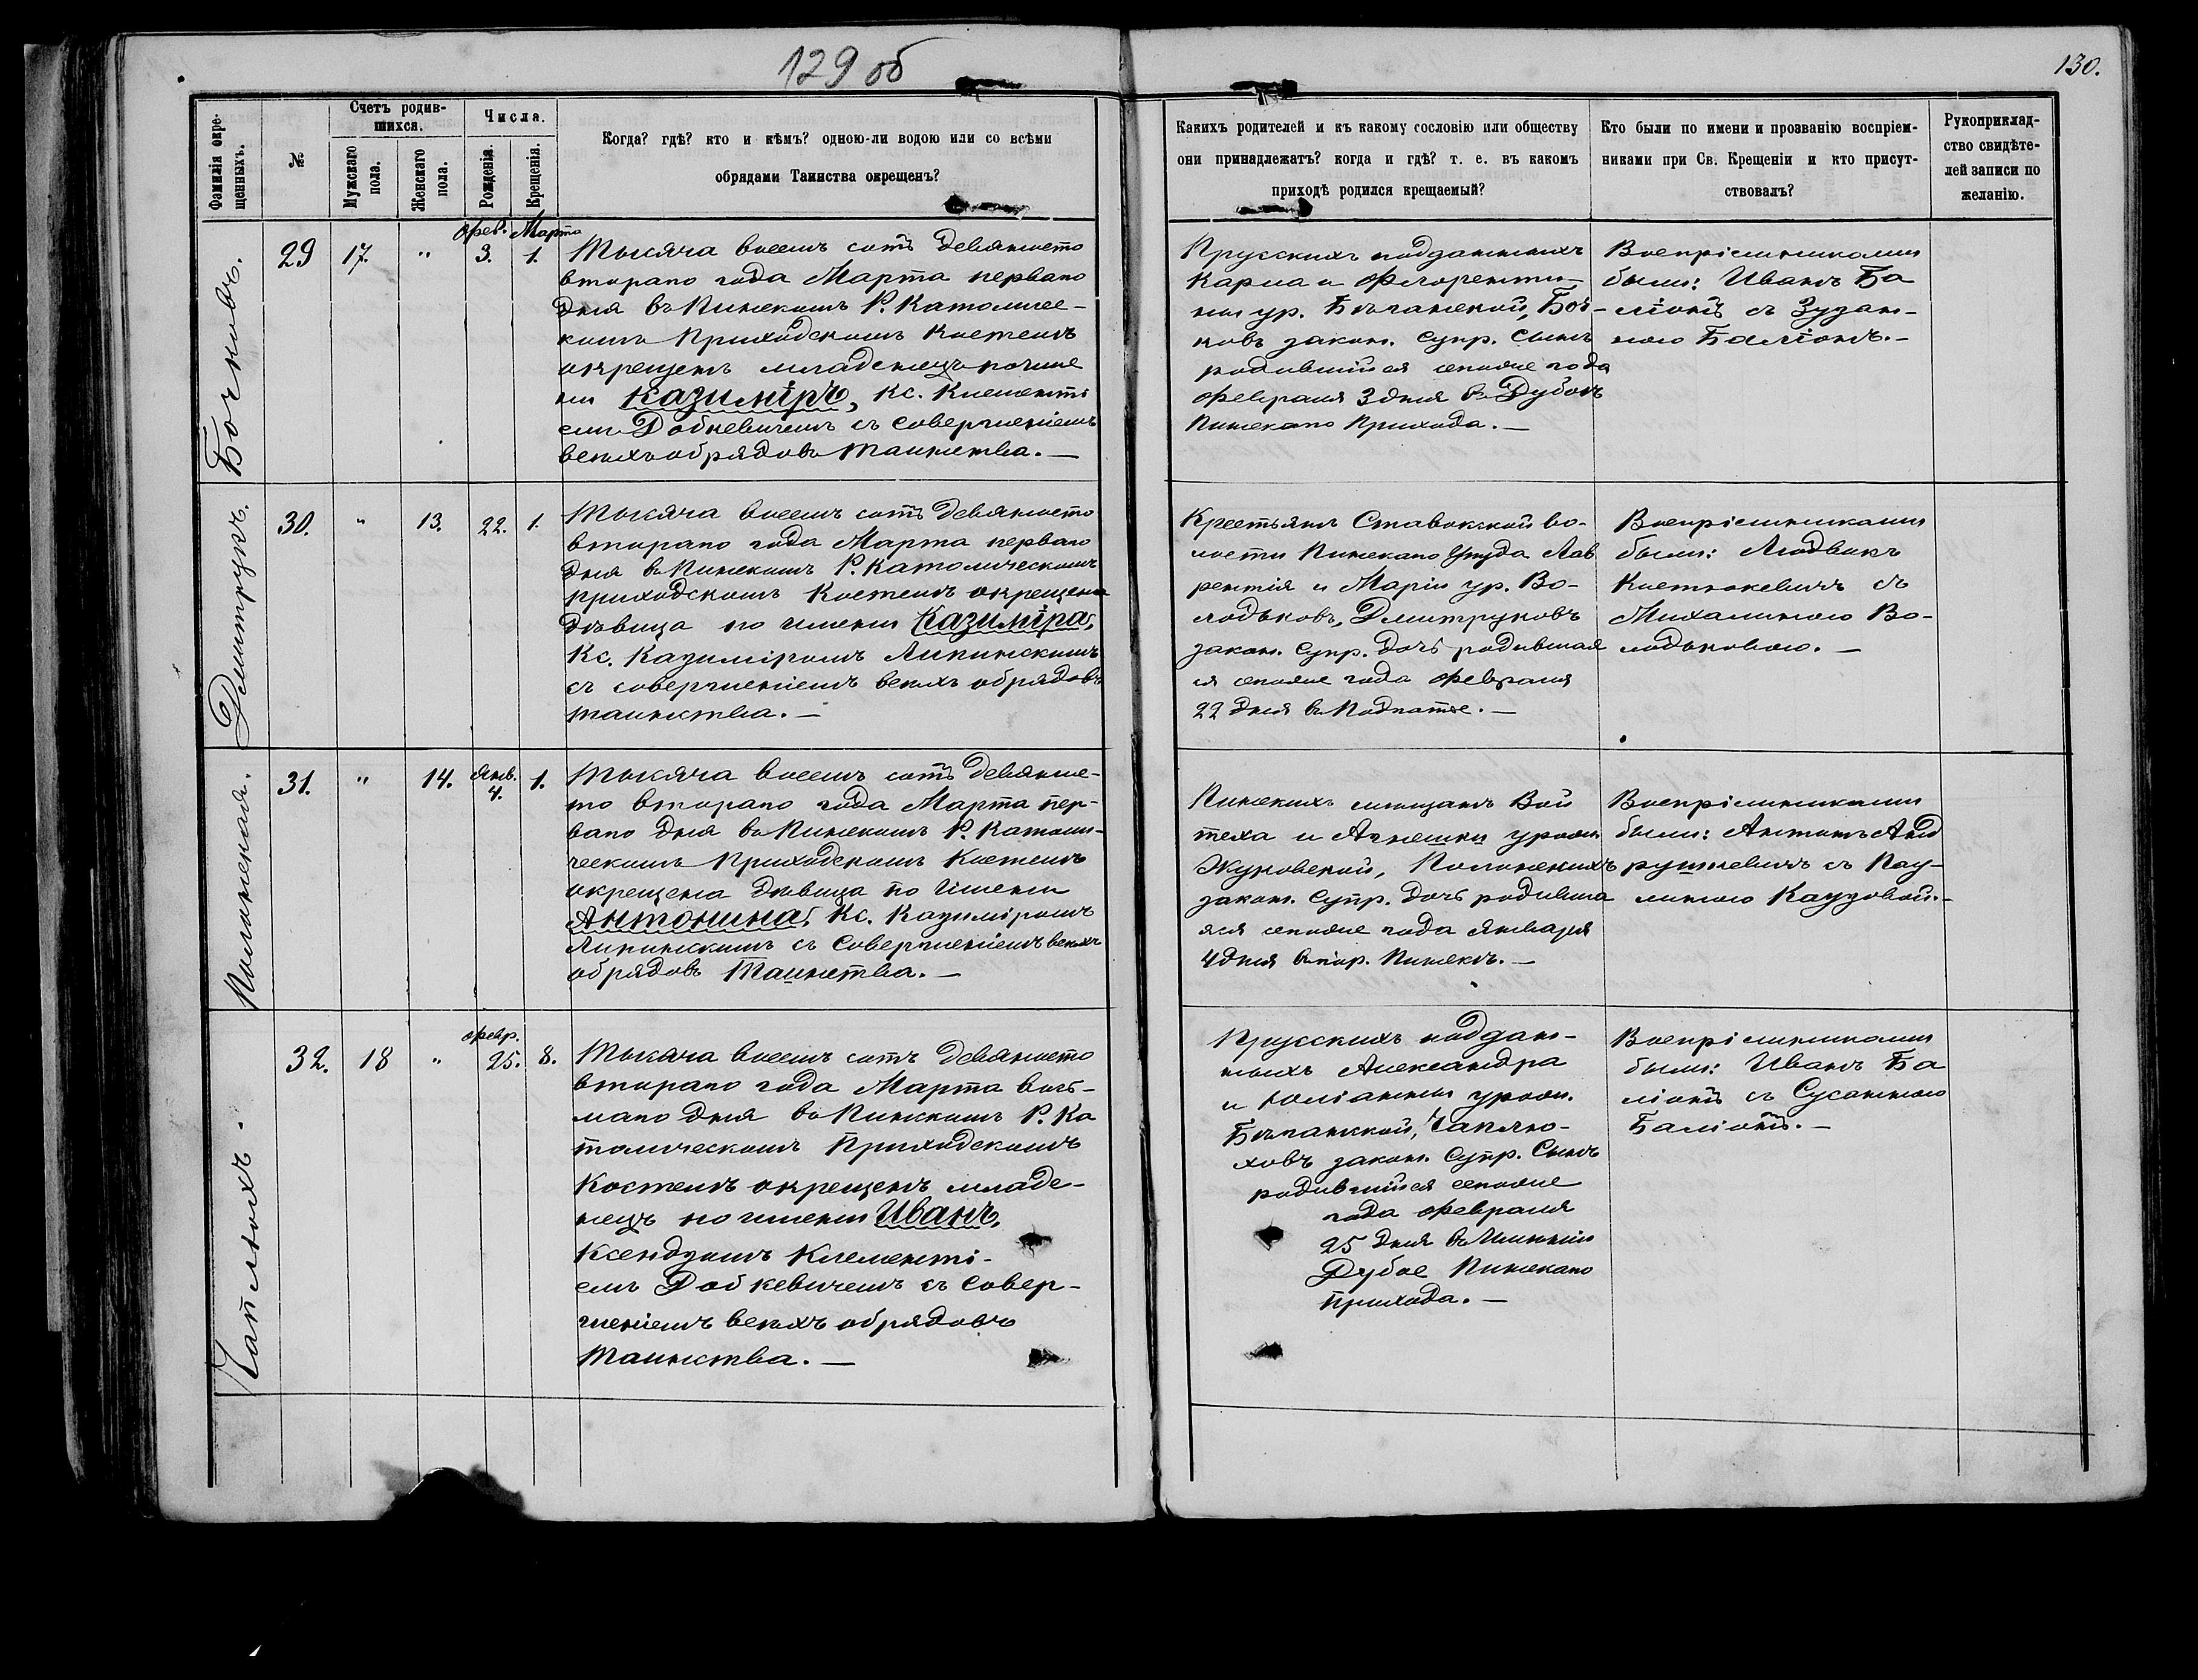 129 об
130.
Фамилія окре-
щенныхъ.
№
Счетъ родив-
шихся.
Мужскаго
пола.
Женскаго
пола.
Числа.
Рожденія.
Крещенія.
Когда? гдѣ? кто и кѣмъ? одною-ли водою или со всѣми
обрядами Таинства окрещенъ?
Какихъ родителей и къ какому сословію или обществу
они принадлежатъ? когда и гдѣ? т. е. въ какомъ
приходѣ родился крещаемый?
Кто были по имени и прозванію воспріем-
никами при Св. Крещеніи и кто присут-
ствовалъ?
Рукоприклад-
ство свидѣте-
лей записи по
желанію.
29
17.
"
Фев.
3.
Марта
1.
Тысяча восемь сотъ девяносто
втораго года Марта перваго
дня въ Пинскомъ Р. Католичес-
комъ Приходскомъ Костелѣ
окрещенъ младенецъ по име
ни Казиміръ, Кс. Клементі
емъ Добкевичемъ съ совершеніемъ
всѣхъ обрядовъ Таинства. —
Прусскихъ подданныхъ
Карла и Флоренти-
ны ур.
законн. Супр. Сынъ
родившійся сего же года
Февраля 3 дня въ Дубоѣ
Пинскаго Прихода. —
Воспріемниками
были: Иванъ Ба
ліонъ съ Зузан-
ною Баліонъ. —
Дмитрукъ.
30.
"
13.
22.
1.
Тысяча восемь сотъ девяносто
втораго года Марта перваго
дня въ Пинскомъ Р. Католическомъ
приходскомъ Костелѣ окрещена
дѣвица по имени Казиміра,
Кс. Казиміромъ Липинскимъ
съ совершеніемъ всѣхъ обрядовъ
таинства. —
Крестьянъ Ставокской во-
лости Пинскаго Уѣзда Лав
рентія и Маріи ур. Во-
лодьковъ, Дмитруковъ
закон. Супр. дочь родившая
ся сего же года Февраля
22 дня въ
Воспріемниками
были: Людвикъ
Костюкевичъ съ
Михалиною Во-
лодьковою. —
31.
"
14.
Янв.
4.
1.
Тысяча восемь сотъ девянос-
то втораго года Марта пер-
ваго дня въ Пинскомъ Р. Католи-
ческомъ Приходскомъ Костелѣ
окрещена дѣвица по имени
Антонина, Кс. Казиміромъ
Липинскимъ съ Совершеніемъ всѣхъ
обрядовъ Таинства. —
Пинскихъ мѣщанъ Вой
теха и Агнешки урож
Жуковской,
закон. Супр. дочь родивша
яся сего же года Января
4 дня въ гор. Пинскѣ. —
Воспріемниками
были: Антонъ Анд
рушкевичъ съ Пау-
линою
32.
18
"
Февр.
25.
8.
Тысяча восемь сотъ девяносто
втораго года Марта вось-
маго дня въ Пинскомъ Р. Ка
толическомъ Приходскомъ
Костелѣ окрещенъ младе-
нецъ по имени Иванъ,
Ксендзомъ Клементі-
емъ Добкевичемъ съ Совер-
шеніемъ всѣхъ обрядовъ
Таинства. —
Прусскихъ поддан-
ныхъ Александра
и Юліанны урож.
законн. Супр. Сынъ
родившійся сего же
года Февраля
25 дня въ Имѣніи
Дубое Пинскаго
прихода. —
Воспріемниками
были: Иванъ Ба
ліонъ съ Сусанною
Баліонъ. —